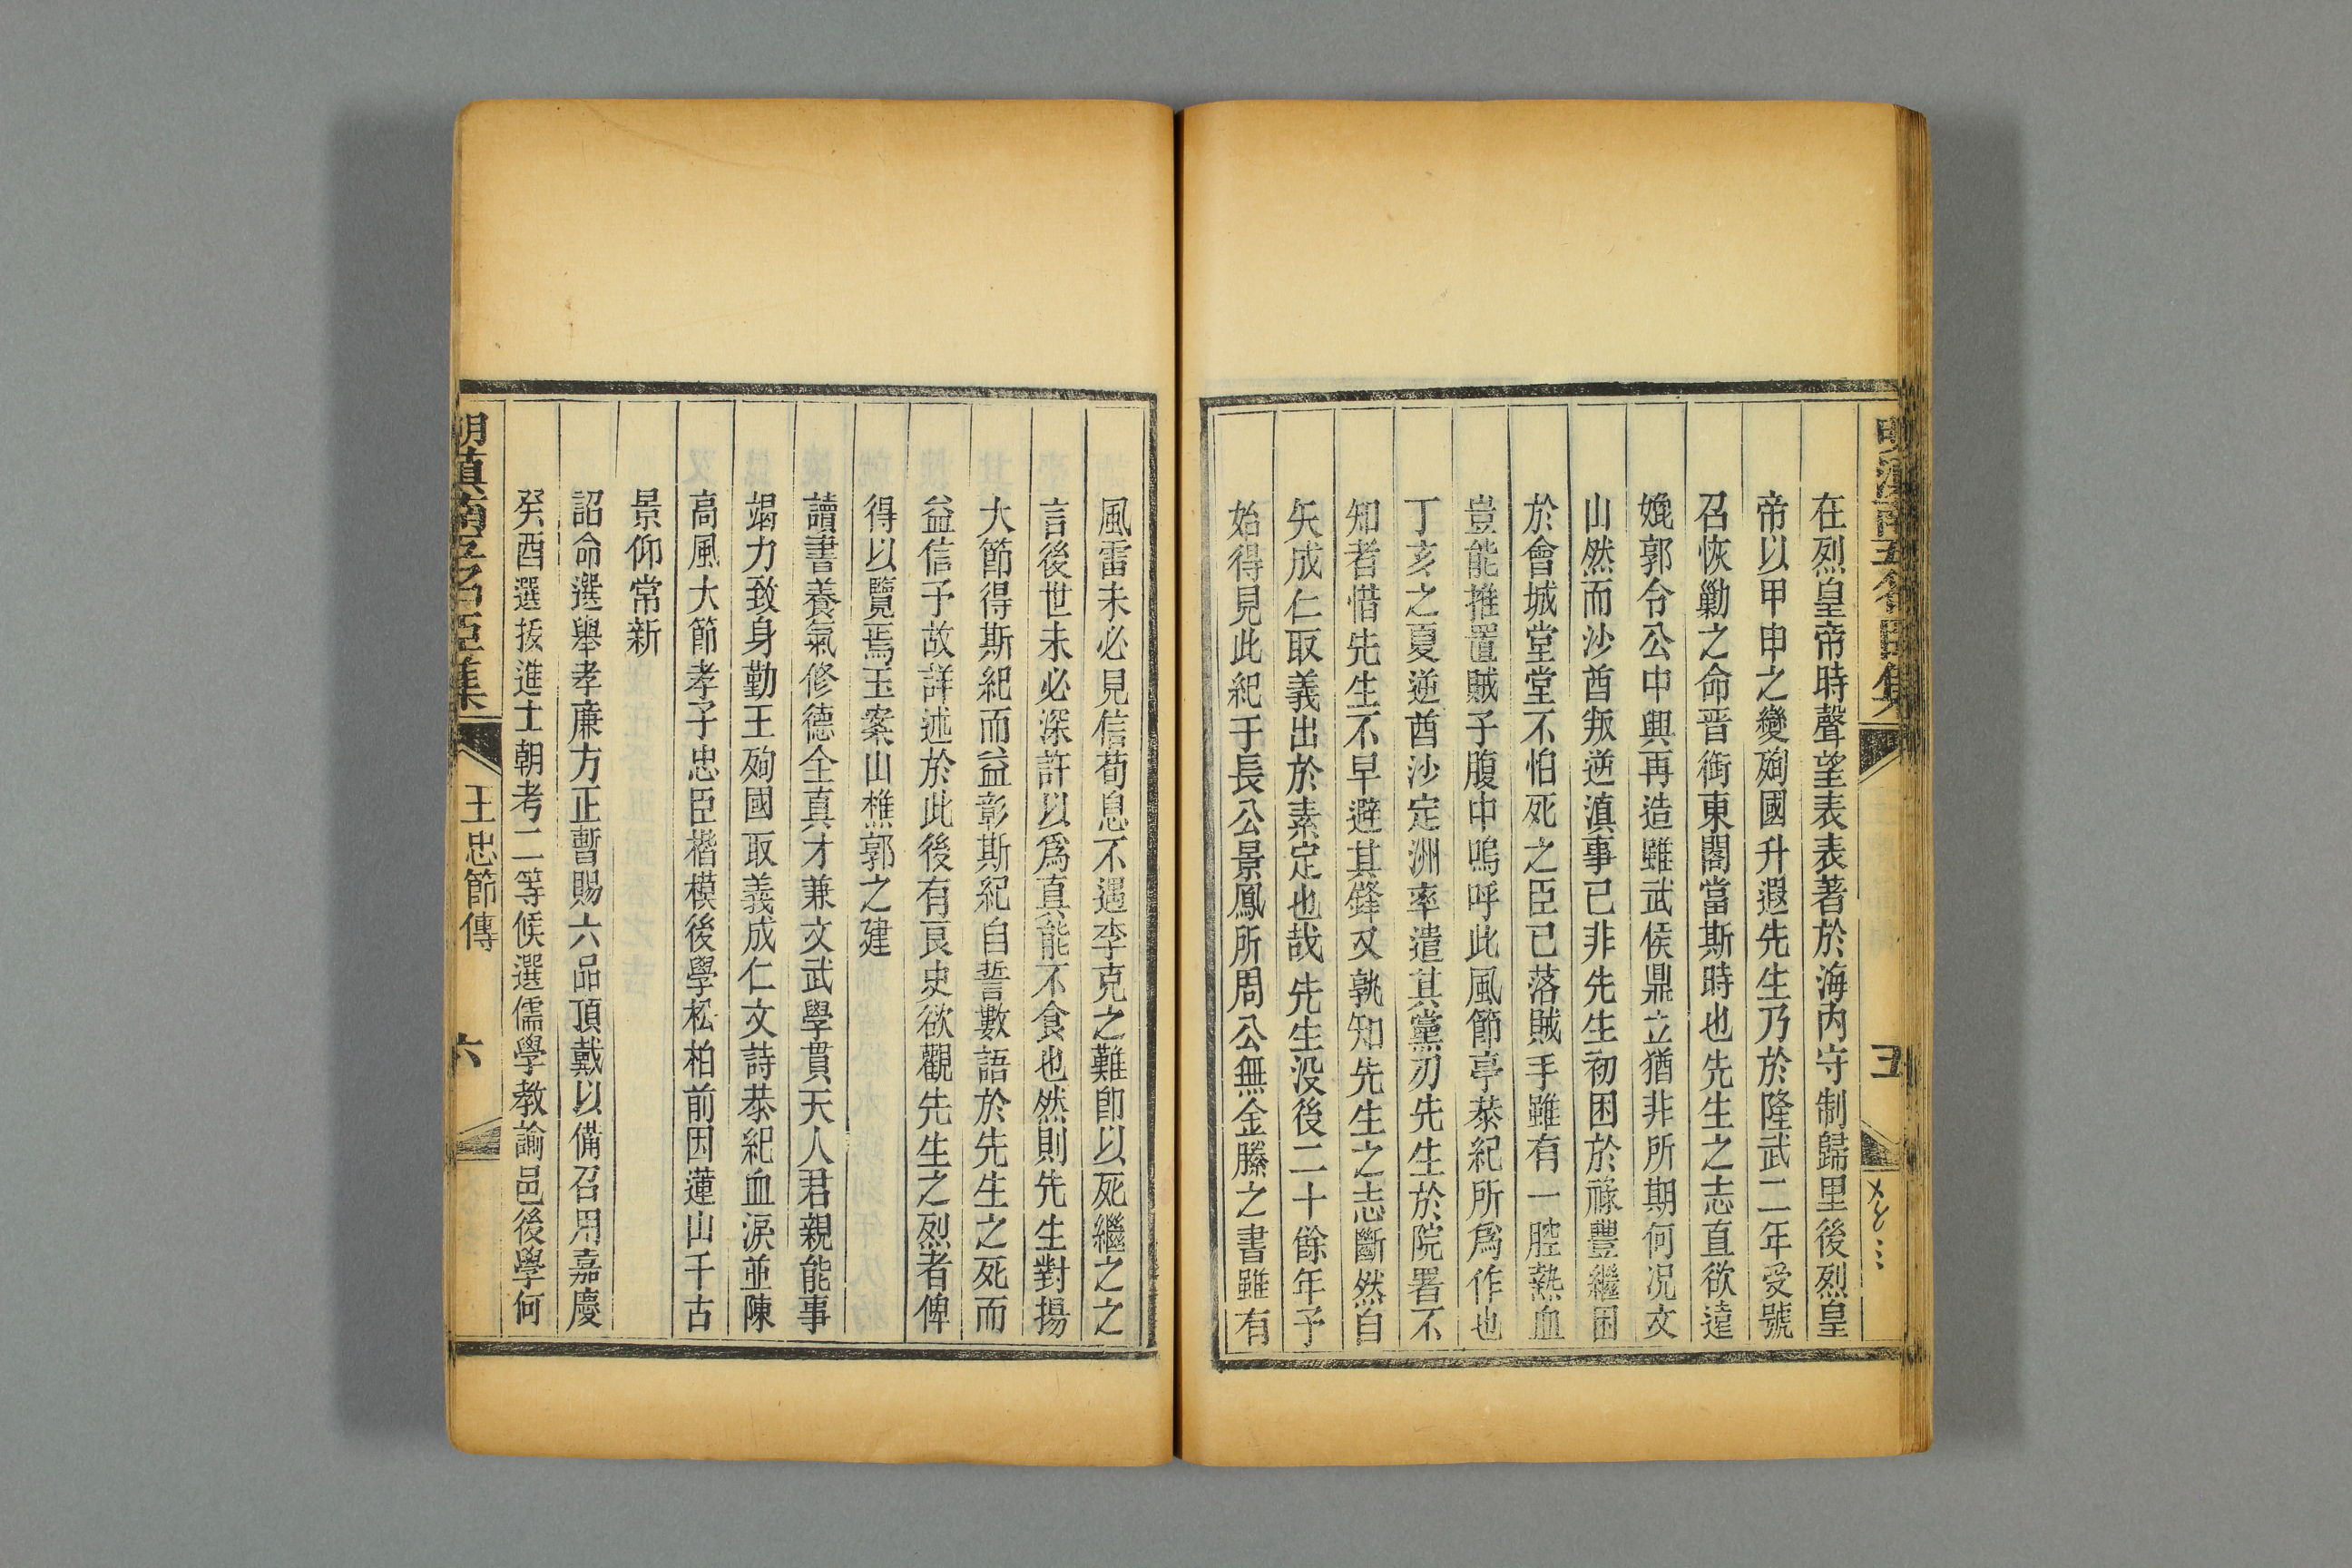 明滇南五名臣集
五
在烈皇帝時聲望表表著於海內守制歸里後烈皇
帝以甲申之變殉國升遐先生乃於隆武二年受號
召恢勦之命晋銜東閣當斯時也先生之志直欲遠
娩郭令公中興再造雖武侯鼎立猶非所期何况文
山然而沙酋叛逆滇事已非先生初困於祿豐繼困
於會城堂堂不怕死之臣已落賊手雖有一腔熱血
豈能推置賊子腹中嗚呼此風節亭恭紀所爲作也
丁亥之夏逆酋沙定洲率遣其黨刃先生於院署不
知者惜先生不早避其鋒又孰知先生之志斷然自
矢成仁取義出於素定也哉先生没後二十餘年予
始得見此紀于長公景鳳所周公無金縢之書雖有
風雷未必見信荀息不遇李克之難卽以死繼之之
言後世未必深許以爲真能不食也然則先生對揚
大節得斯紀而益彰斯紀自誓數語於先生之死而
益信予故詳述於此後有良史欲觀先生之烈者俾
得以覽焉玉案山樵郭之建
讀書養氣修德全真才兼文武學貫天人君親能事
竭力致身勤王殉國取義成仁文詩恭紀血淚並陳
高風大節孝子忠臣楷模後學松柏前因蓮山千古
景仰常新
詔命選舉孝廉方正暫賜六品頂戴以備召用嘉慶
癸酉選拔進士朝考二等候選儒學教諭邑後學何
明滇南五名臣集
王忠節傳
六